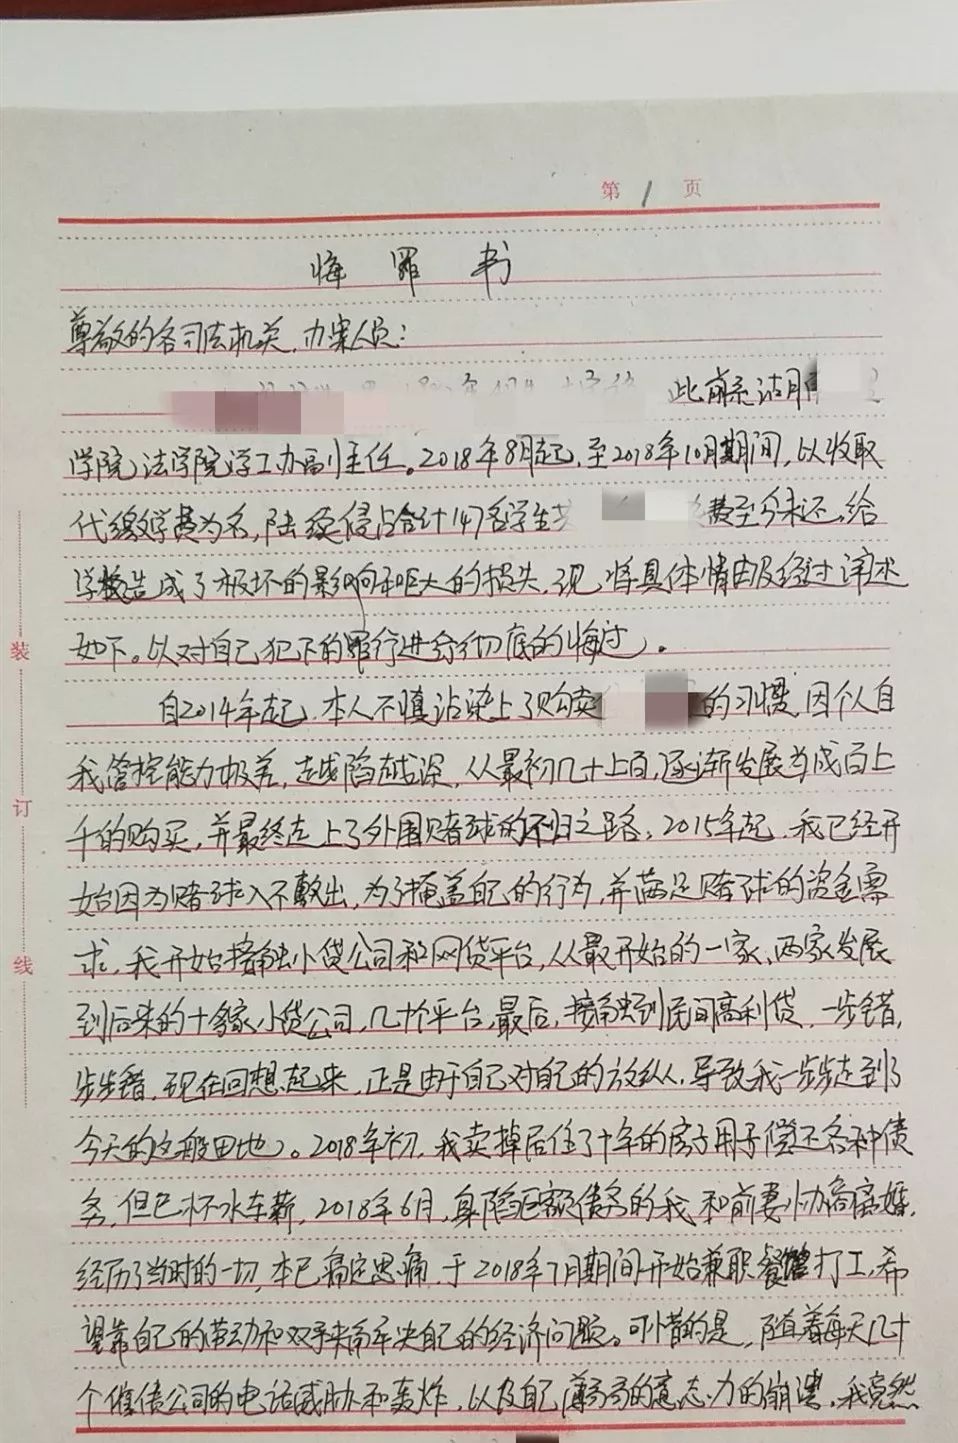 第1页
悔罪书
尊敬的各司法机关、办案人员：
此前系
学院法学院学工办副主任。2018年8月起，至2018年10月期间，以收取
代缴学费为名，陆续侵占合计147名学生 费至今未还，给
学校造成了极坏的影响和巨大的损失，现将具体情由及经过详述
如下。以对自己犯下的罪行进行彻底的悔过。
自2014年起，本人不慎沾染上了购买 的习惯，因个人自
我管控能力极差，越陷越深，从最初几十上百，逐渐发展为成百上
千的购买，并最终走上了外围赌球的不归之路，2015年起，我已经开
始因为赌球入不敷出，为了掩盖自己的行为，并满足赌球的资金需
求，我开始接触小贷公司和网贷平台，从最开始的一家、两家发展
到后来的十多家小贷公司，几十个平台，最后，接触到民间高利贷，一步错，
步步错，现在回想起来，正是由于自己对自己的放纵，导致我一步步走到了
今天的这般田地。2018年初，我卖掉居住了十年的房子用于偿还各种债
务，但已杯水车薪，2018年6月，身陷巨额债务的我和前妻协商离婚，
经历了当时的一切，本已痛定思痛，于2018年7月期间开始兼职餐馆打工，希
望靠自己的劳动和双手来解决自己的经济问题。可惜的是，随着每天几十
个催债公司的电话威胁和轰炸，以及自己薄弱的意志力的崩溃，我竟然
装
订
线